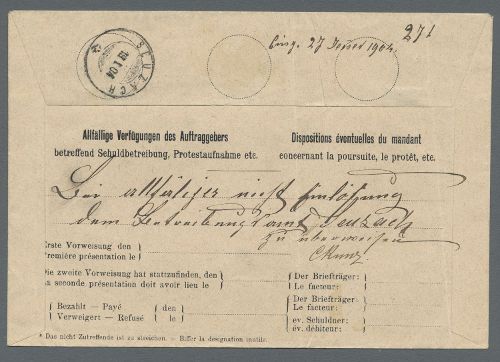 271
Eing. 27 Januar 1904.
SEUZACH
19.I.04
Allfällige Verfügungen des Auftraggebers
betreffend Schuldbetreibung, Protestaufnahme etc.
Dispositions éventuelles du mandant
concernant la poursuite, le protêt, etc.
Bei allfäliger nicht Einlösung
dem Betreibungsamt Seuzach
zu überweisen
Erste Vorweisung den
Première présentation le
Die zweite Vorweisung hat stattzufinden, den
La seconde présentation doit avoir lieu le
Der Briefträger:
Le facteur:
Bezahlt — Payé
Verweigert — Refusé
den
le
Der Briefträger:
Le facteur:
ev. Schuldner:
év. débiteur:
* Das nicht Zutreffende ist zu streichen. — Biffer la désignation inutile.